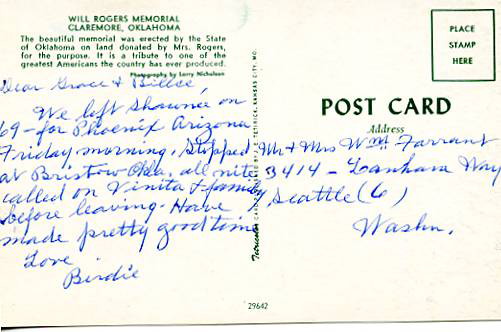 WILL ROGERS MEMORIAL
CLAREMORE, OKLAHOMA
The beautiful memorial was erected by the State
of Oklahoma on land donated by Mrs. Rogers,
for the purpose. It is a tribute to one of the
greatest Americans the country has ever produced.
Photography by Larry Nicholson
Dear Grace & Billee,
We left Shawnee on
69 - for Phoenix Arizona
Friday morning. Stopped
at Bristow Okla. all nite
called on Vinita & family
before leaving. Have
made pretty good time
Love
Birdie
PLACE
STAMP
HERE
POST CARD
Address
Mr & Mrs Wm Farrant
3414 - Lanham Way
Seattle (6)
Washn.
29642